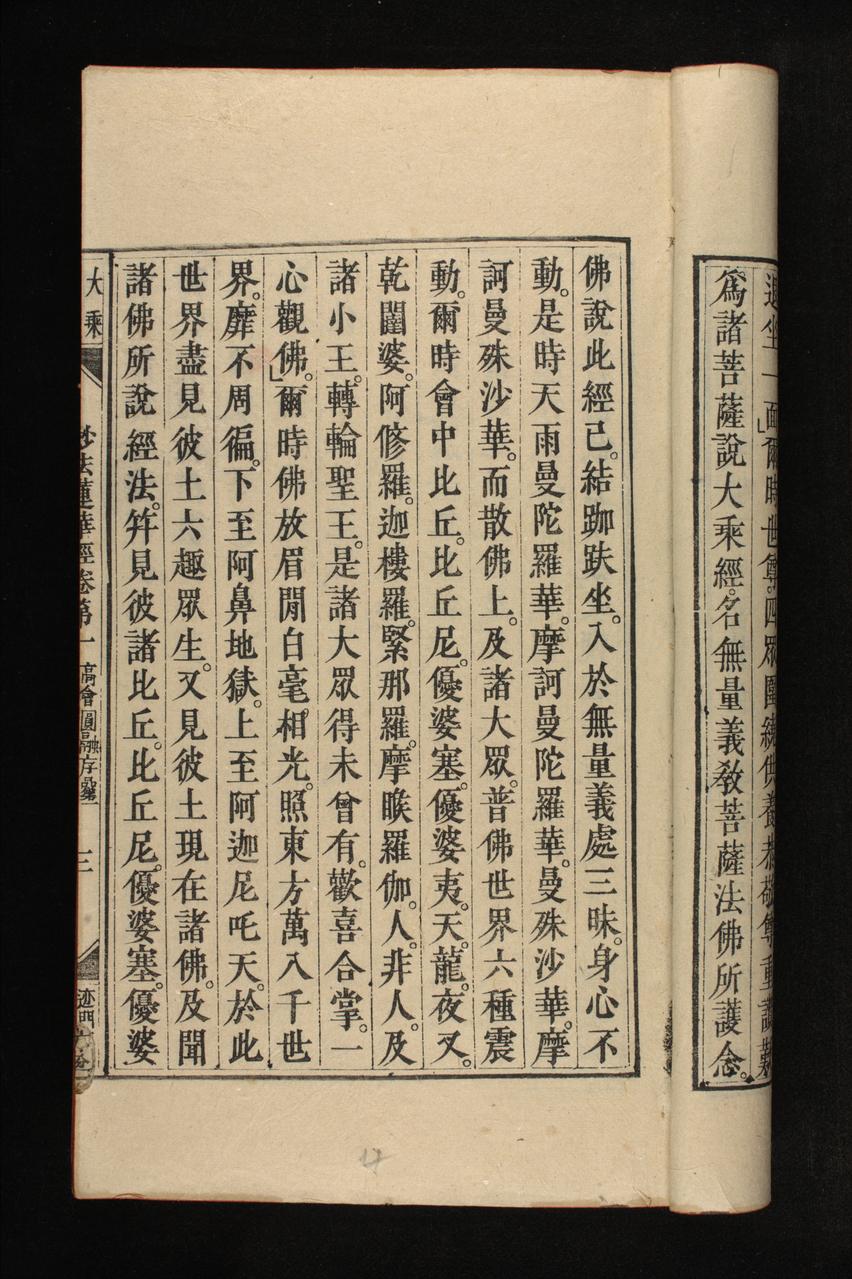 退坐一面爾時世尊四眾圍繞供養恭敬尊重讚歎
爲諸菩薩說大乘經。名無量義敎菩薩法佛所護念。
佛說此經已。結跏趺坐。入於無量義處三昧。身心不
動。是時天雨曼陀羅華。摩訶曼陀羅華。曼殊沙華。摩
訶曼殊沙華。而散佛上。及諸大眾。普佛世界六種震
動。爾時會中比丘。比丘尼。優婆塞。優婆夷。天。龍。夜叉。
乾闥婆。阿修羅。迦樓羅。緊那羅。摩睺羅伽。人。非人。及
諸小王。轉輪聖王。是諸大眾得未曾有。歡喜合掌。一
心觀佛。爾時佛放眉閒白毫相光。照東方萬八千世
界。靡不周徧。下至阿鼻地獄。上至阿迦尼吒天。於此
世界盡見彼土六趣眾生。又見彼土現在諸佛。及聞
諸佛所說經法。笄見彼諸比丘。比丘尼。優婆塞。優婆
大乘 妙法蓮華經卷第一 高會圓融序品第一 三 迹門
17